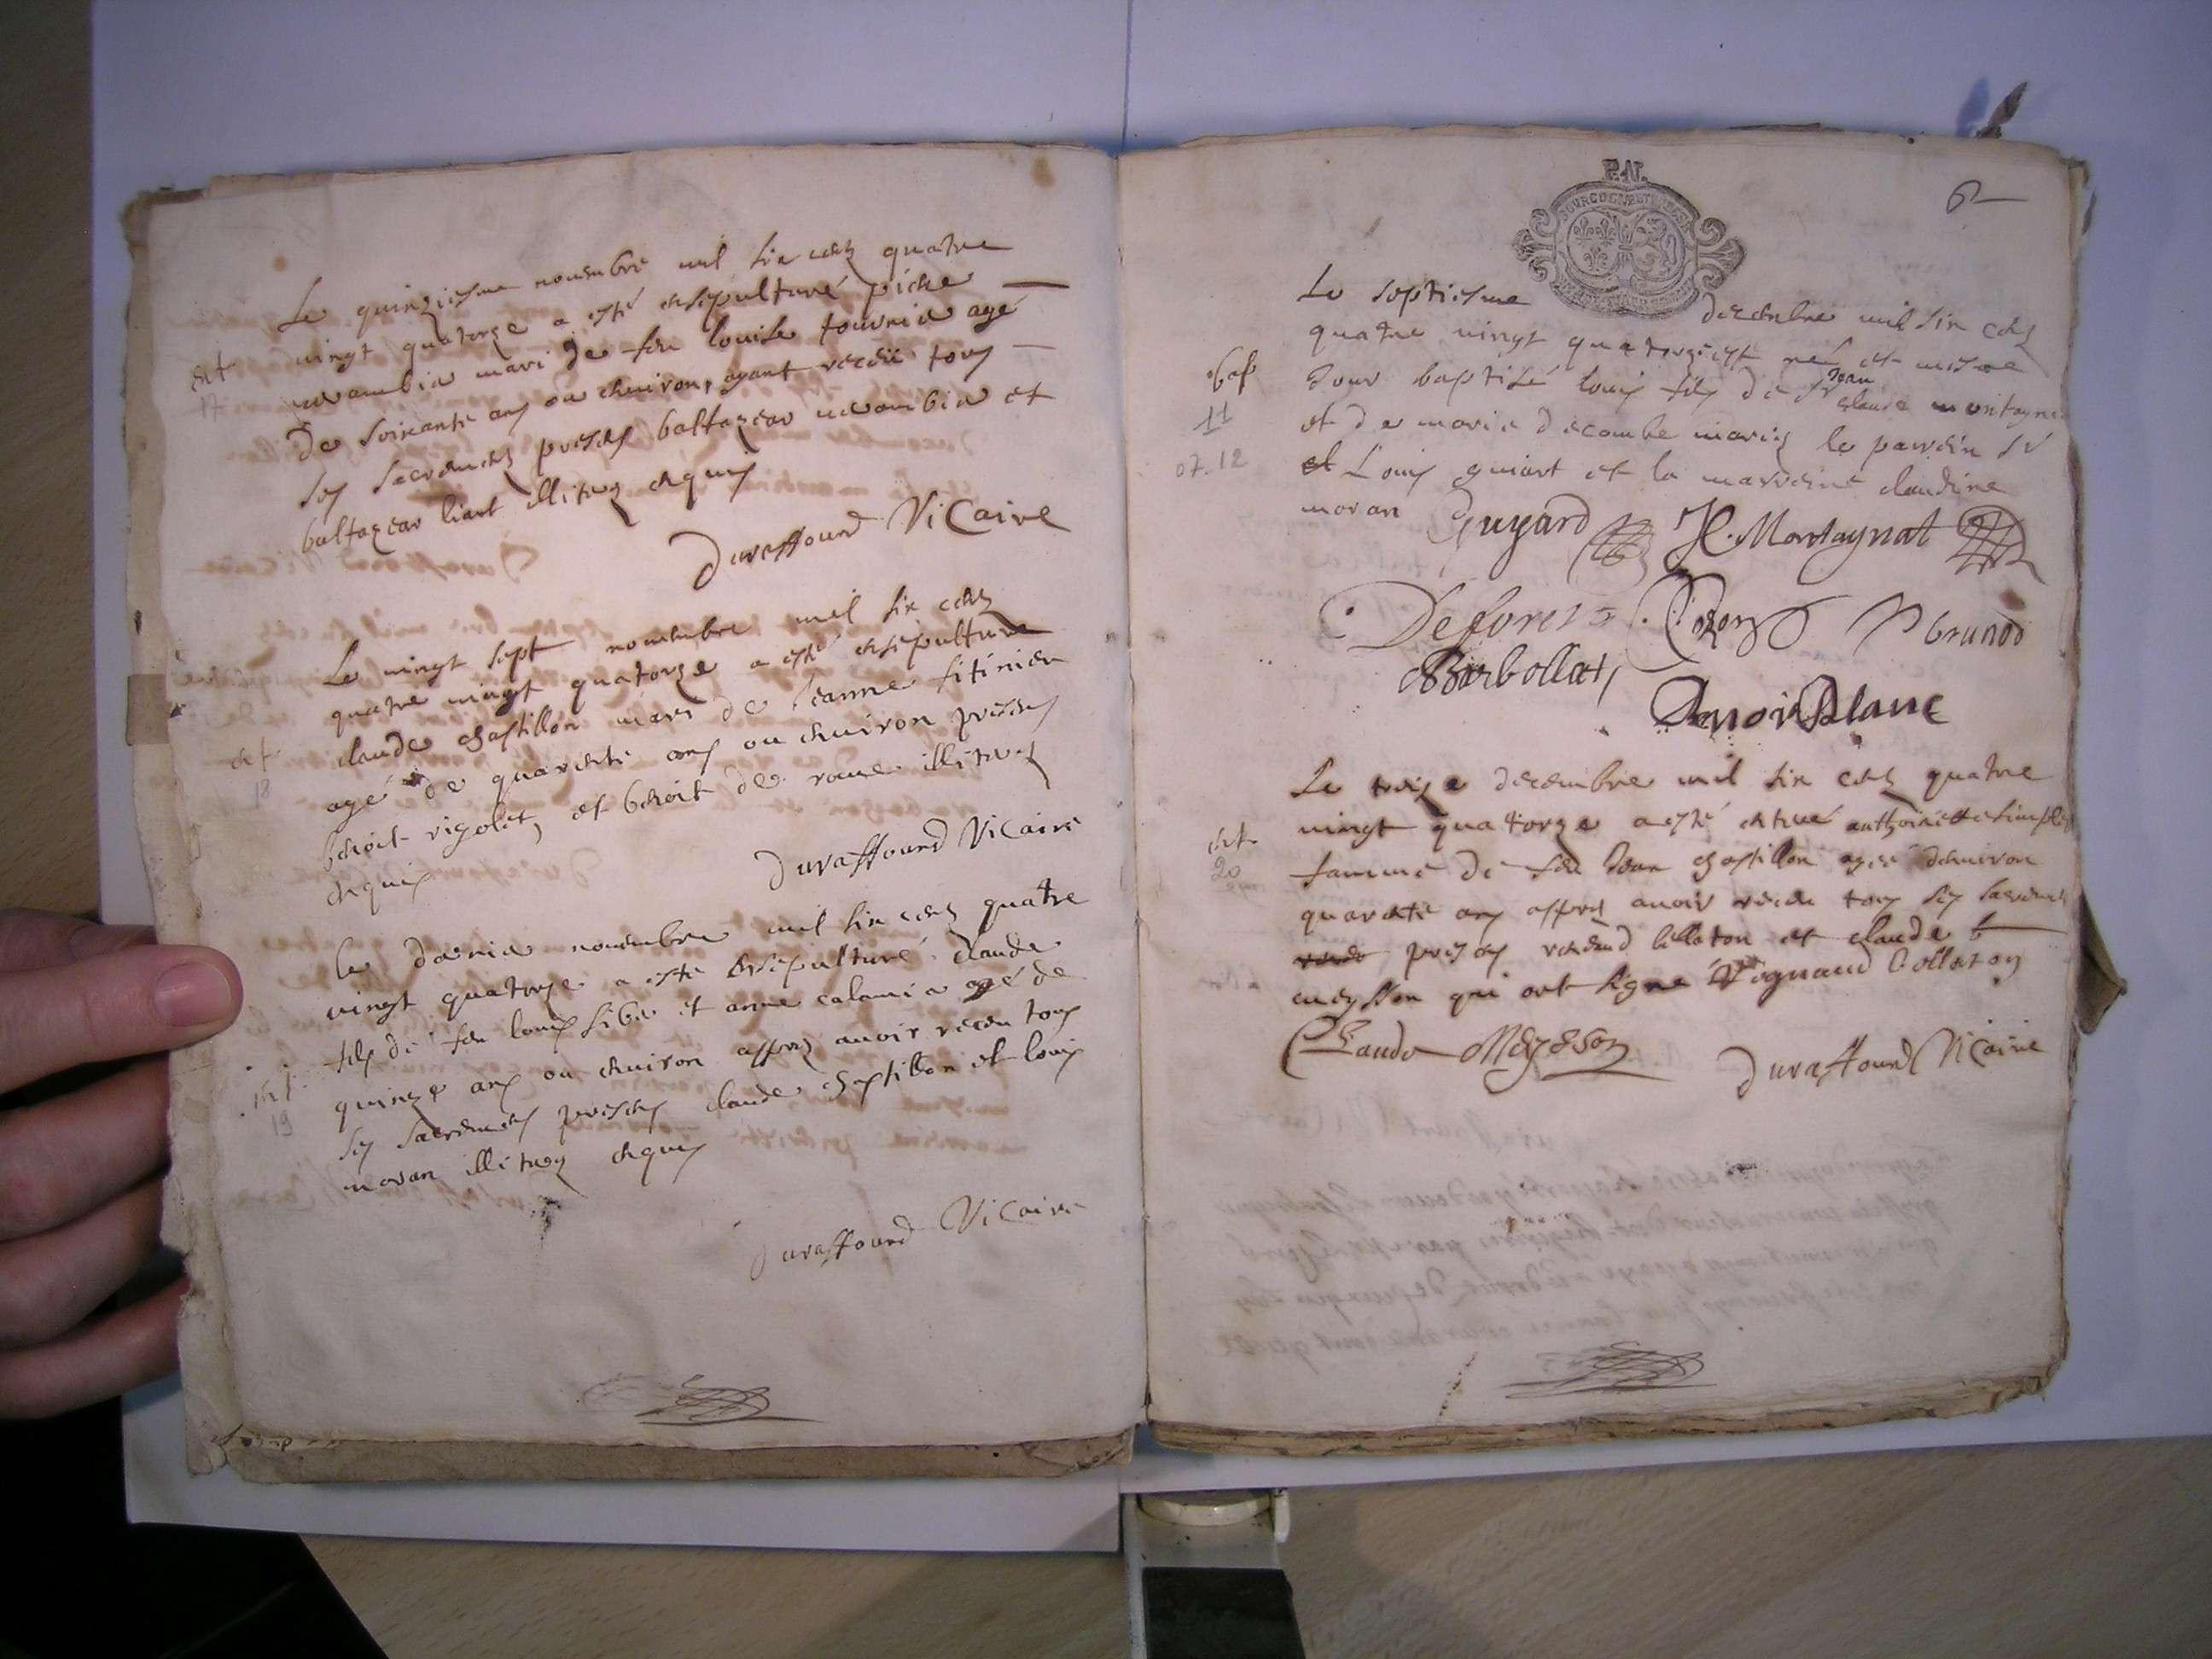 Le quinziesme nouembre mil six cens quatre
ent
17
vingt quatorze a esté ensepulturé
mari de feu louise tournie agé
De soixante ans ou enuiron, ayant receü tous
ses sacremens presens baltazear et
baltazear liart illitrez enquis
Duraffourd ViCaire
Le vingt sept nouembre mil six cens
quatre vingt quatorze a esté ensepulture
claude chastillon mari de Jeanne
ent
18
agé de quarente ans ou enuiron presens
benoit rigolet, et benoit de roue illitrez
enquis
Duraffourd ViCaire
le dernie nouembre mil six cens quatre
vingt quatorze a esté ensepulturé claude
fils de feu louis et anne agé de
ent
19
quinze ans ou enuiron appres auoir receu tous
ses sacremens presens claude chastillon et louis
moran illitrez enquis
Duraffourd ViCaire
P.N.
6
Le septiesme decembre mil six cens
quatre vingt quatorze est né et mesme
bap
11
07.12
Jour baptisé louis fils de Sr Jean
claude montagna
et de marie decombe mariez le parrein Sr
et Louis guiart et la marreine claudine
moran Guyard JC. Montagnat
Deforest Brunod
Barbollat
noirblanc
Le treize decembre mil six cens quatre
vingt quatorze a esté entrré anthoinette
ent
20
famme de feu Jean chastillon agée denuiron
quarente ans appres auoir receu tous ses sacremens
presens renaud bollaton et claude
meysson qui ont signé Regnaud Bollaton
Claude Meysson Duraffourd ViCaire